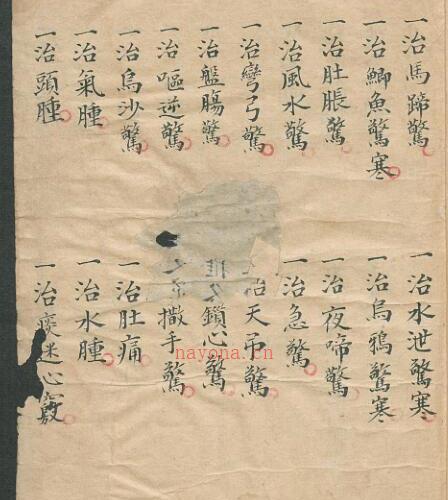 一治馬蹄驚 一治水泄驚寒
一治鯽魚驚寒 一治烏鴉驚寒
一治肚脹驚 一治夜啼驚
一治風水驚 一治急驚
一治彎弓驚 治天吊驚
一治盤腸驚 鎖心驚
一治嘔逆驚 撒手驚
一治烏沙驚 一治肚痛
一治氣腫 一治水腫
一治頭腫 一治痰迷心竅
nayona.cn